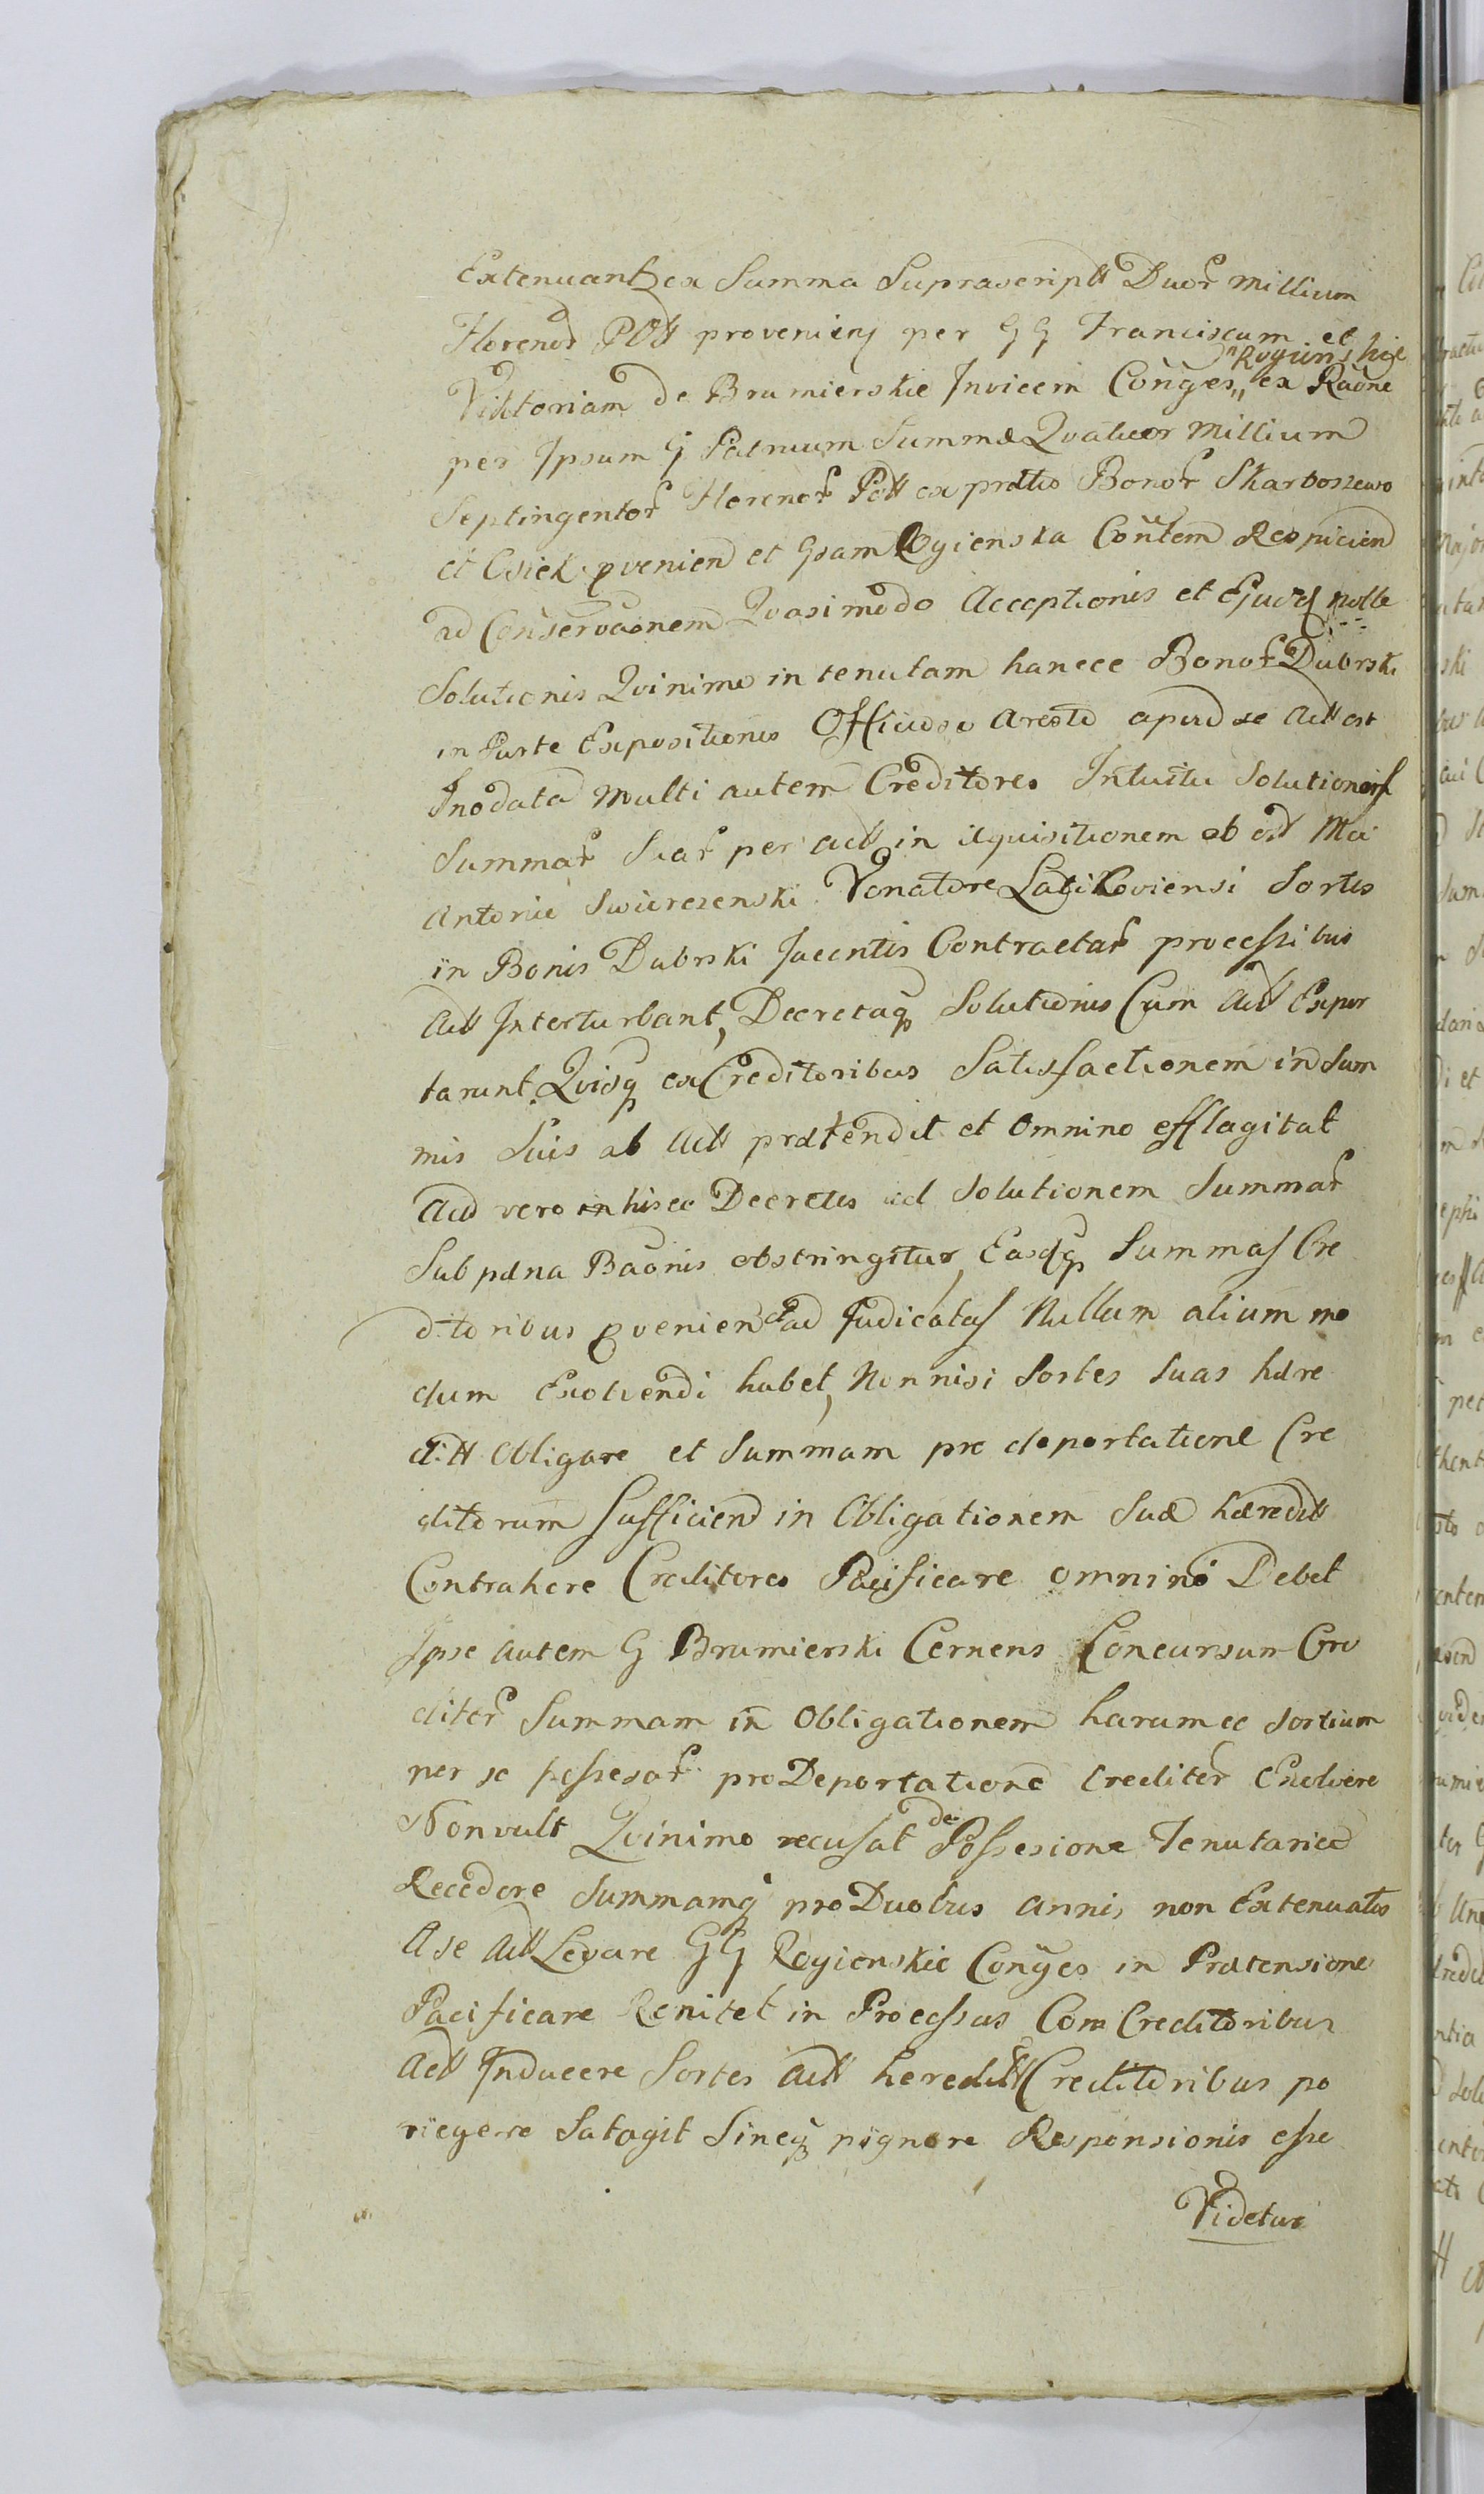 Extenuant ex Summa Suprascriptt Duor Millium
Florenor Pott provenien per GG Franciscum et
Viktoriam de Brumierskie Invicem Conges „Rogienskie ex Raone
per Ipsum G Patruum Summæ Qvatuor Millium
Septingentor Florenor Pott ex prætio Bonor Skarboszewo
et Osiek pvenien et Gsam Rogienska Contem Respicien
ad Conservaonem Qvasimodo Acceptionis et Ejusq nolle
Solutionis Qvinimo in tenutam hancce Bonor Dubrski
in Parte Expositionis Officiose Aresto apud se Actt est
Inodata Multi autem Creditores Intuitu Solutionis
Summar Suar per Actt in aquisitionem ab Mci
Antonii Swierczenski Venatore Laticoviensi Sortis
in Bonis Dubrski Jacentis Contractar processibus
Actt Interturbant, Decretaq Solutionis Cum Actt Expor
tarunt Qvisq ex Creditoribus Satisfactionem in Sum
mis Suis ab Actt prætendit et Omnino efflagitat
Act vero in hisce Decretis ad Solutionem Summar
Sub pæna Baonis obstringitur, Easdq Summas Cre
ditoribus pvenien et ad Judicatas Nullum alium mo
dum Exolvendi habet, Non nisi Sortes Suas hære
ditt Obligare et Summam pro deportatione Cre
ditorum Sufficien in Obligationem Suæ hæreditt
Contrahere Creditores Pacificare omnino Debet
Ipse autem G Brumierski Cernens Concursum Cre
ditor Summam in Obligationem harumce Sortium
per se possesar pro Deportatione Creditor Exolvere
Non vult Qvinimo recusat de Possesione Tenutaria
Recedere Summamq pro Duobus annis non Extenuatis
A se Actt Levare GG Rogienskie Conges in Prætensione
Pacificare Renitet in Processus Com Creditoribus
Actt Inducere Sortes Actt hereditt Creditoribus po
riegere Satagit Sineq pignore Responsionis esse
Videtur